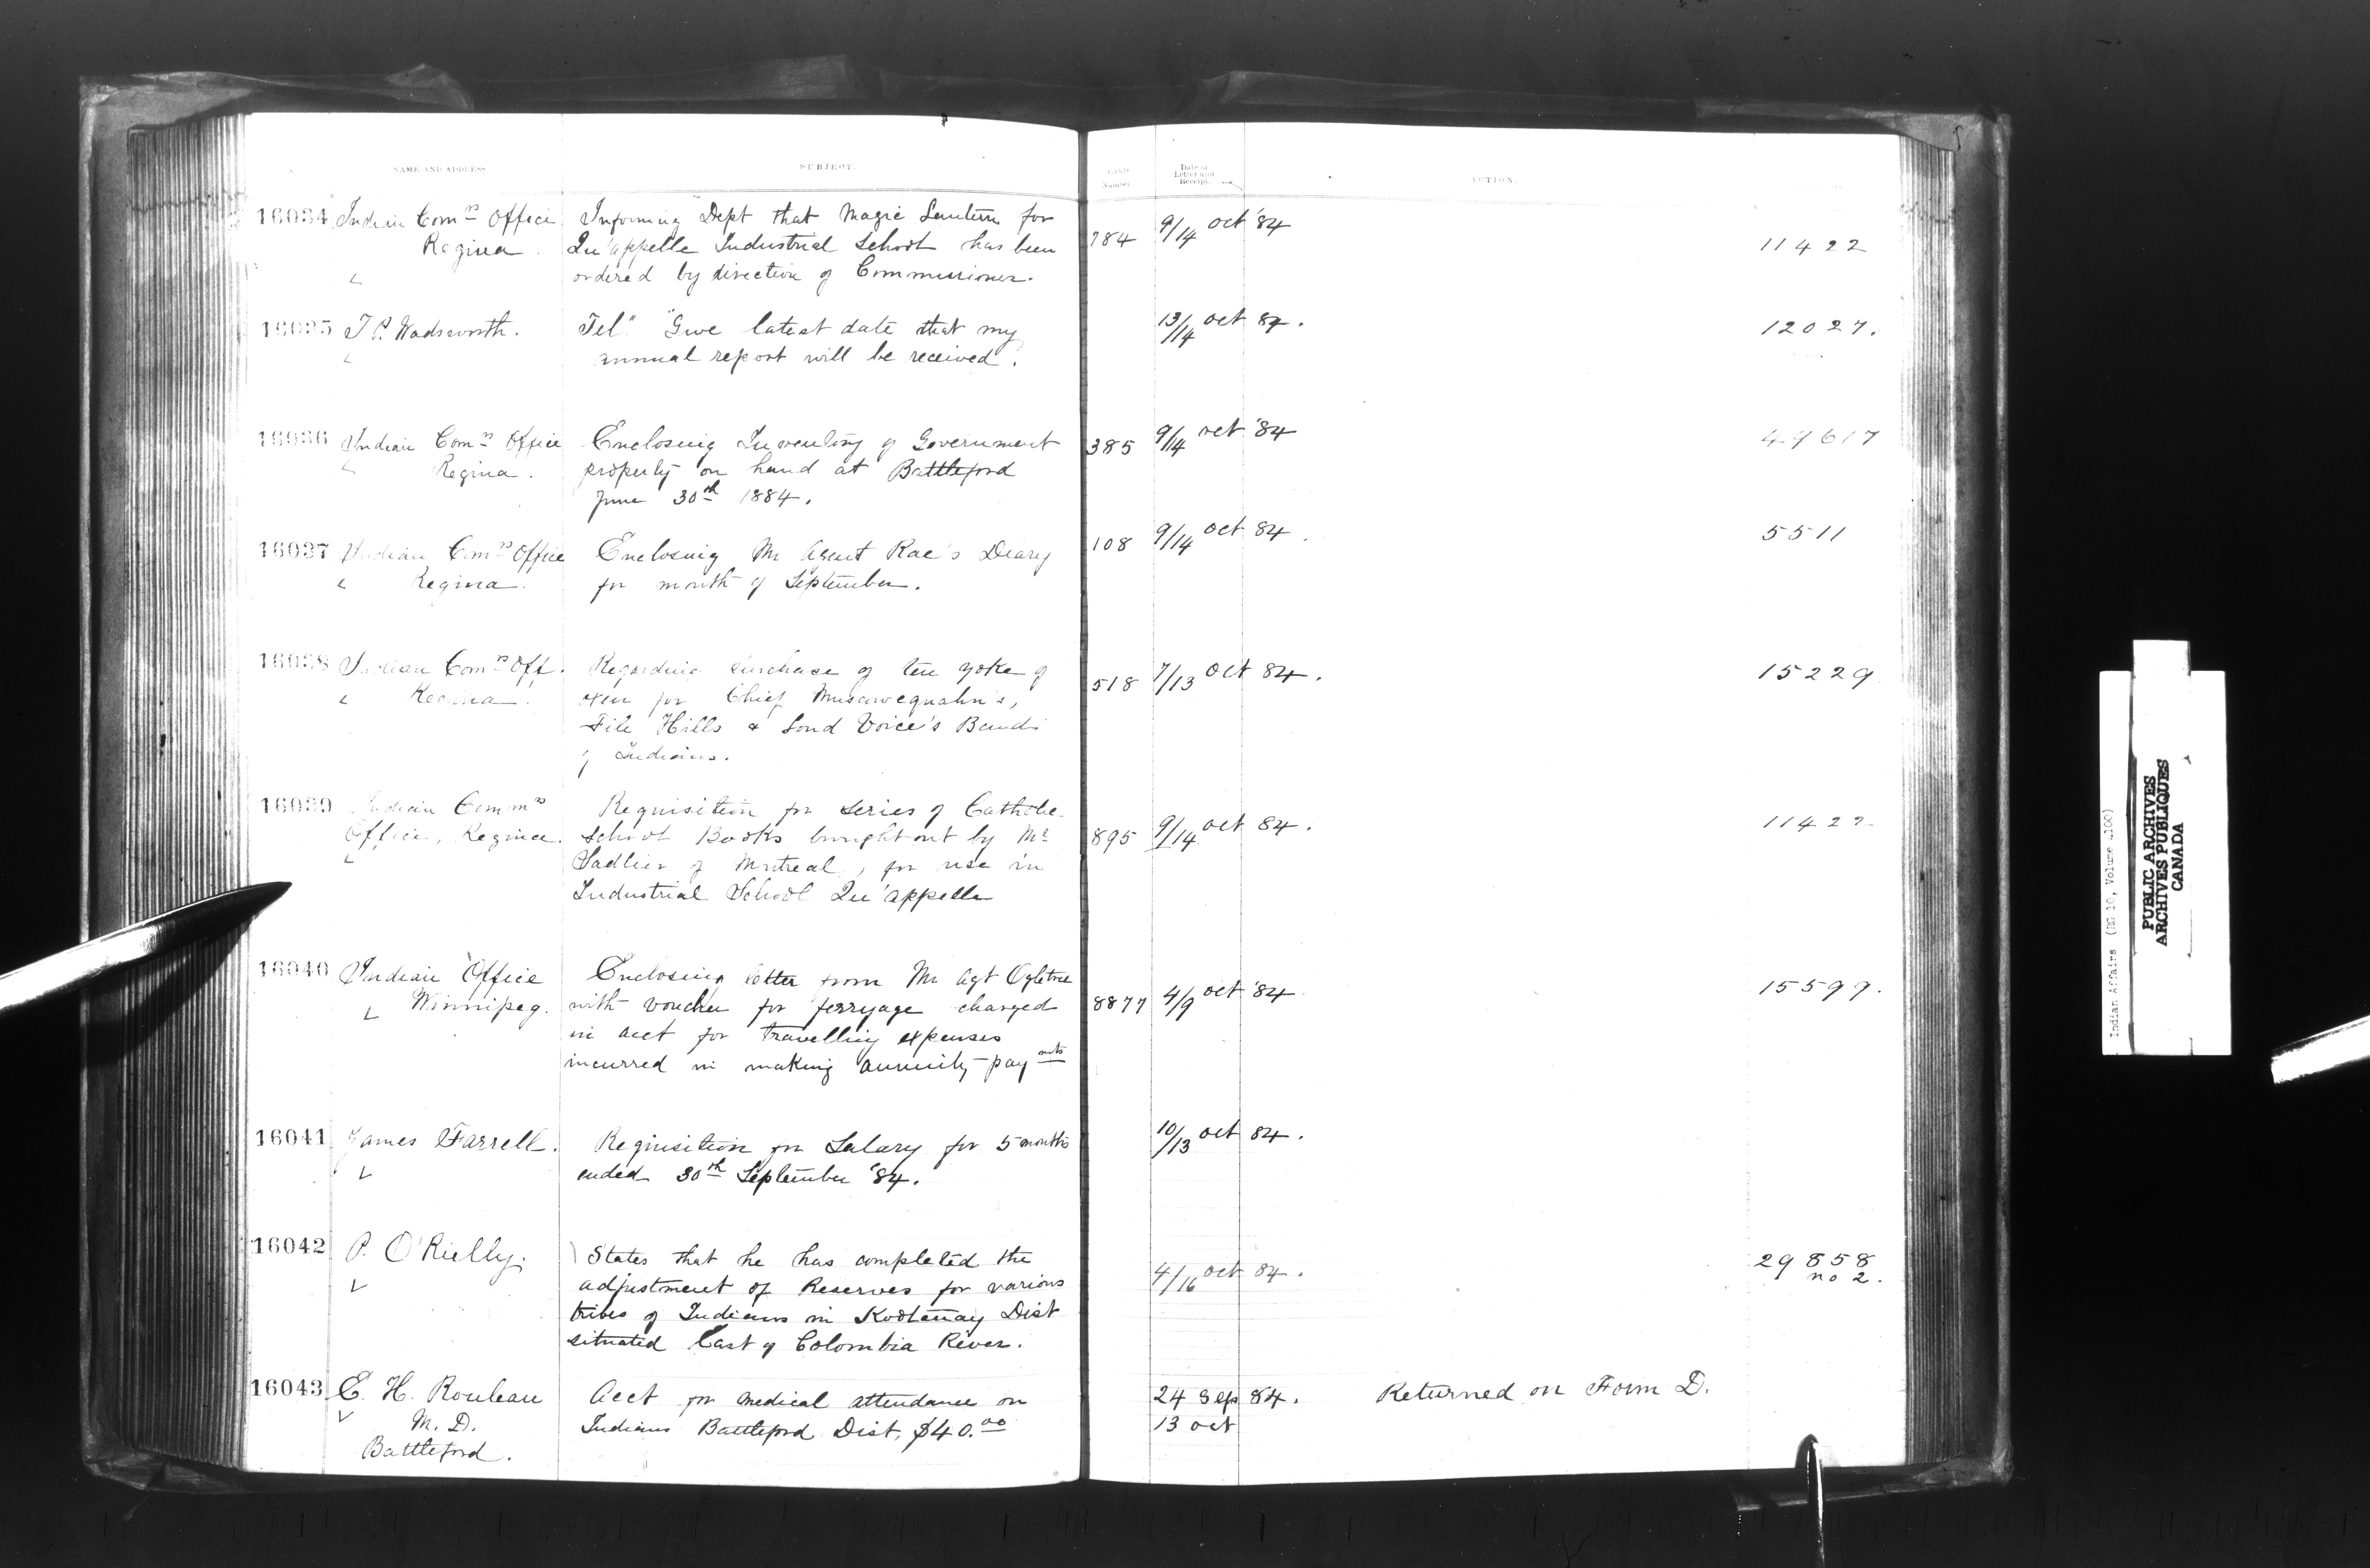 NAME AND ADDRESS SUBJECT. Number Date of Letter and Receipt. ACTION.
16034 Indian Comrs Office Informing Dept that Magic Lantern for 784 9/14 oct '84 11422
Regina. Qu'appelle Industrial School has been
ordered by direction of Commissioner.
16035 T. P. Wadsworth. Tel" "Give latest date that my 13/14 oct 84. 12027.
annual report will be received".
16036 Indian Comrs Office Enclosing Inventory of Government 385 9/14 oct '84
Regina. property on hand at Battleford
June 30th 1884.
16037 Indian Comrs Office Enclosing Mr Agent Rae's Diary 108 9/14 oct 84. 5511
Regina. for month of September.
16038 Indian Comrs Off. Regarding purchase of ten yoke of 518 7/13 oct 84. 15229
Regina oxen for Chief Muscowequahn's,
File Hills & Loud Voice's Bands
of Indians.
16039 Indian Commrs Requisition for series of Catholic 895 9/14 oct 84. 11422
Office, Regina. School Books brought out by Mr
Sadlier of Montreal, for use in
Industrial School Qu'appelle
16040 Indian Office Enclosing letter from Mr Agt Ogletree 8877 4/9 oct '84 15599.
Winnipeg. with voucher for ferryage charged
in acct for travelling expenses
incurred in making annuity paymnts
16041 James Farrell. Requisition for Salary for 5 months 10/13 oct 84.
ended 30th September '84.
16042 P. O'Rielly. States that he has completed the 4/16 oct 84. 29858
adjustment of Reserves for various no 2.
tribes of Indians in Kootenay Dist
situated East of Colombia River.
16043 E. H. Rouleau Acct for medical attendance on 24 Sep 84. Returned on Form D.
M. D. Indians Battleford Dist, $40.00 13 oct
Battleford.
PUBLIC ARCHIVES
ARCHIVES PUBLIQUES
CANADA
Indian Affairs (RG 10, Volume